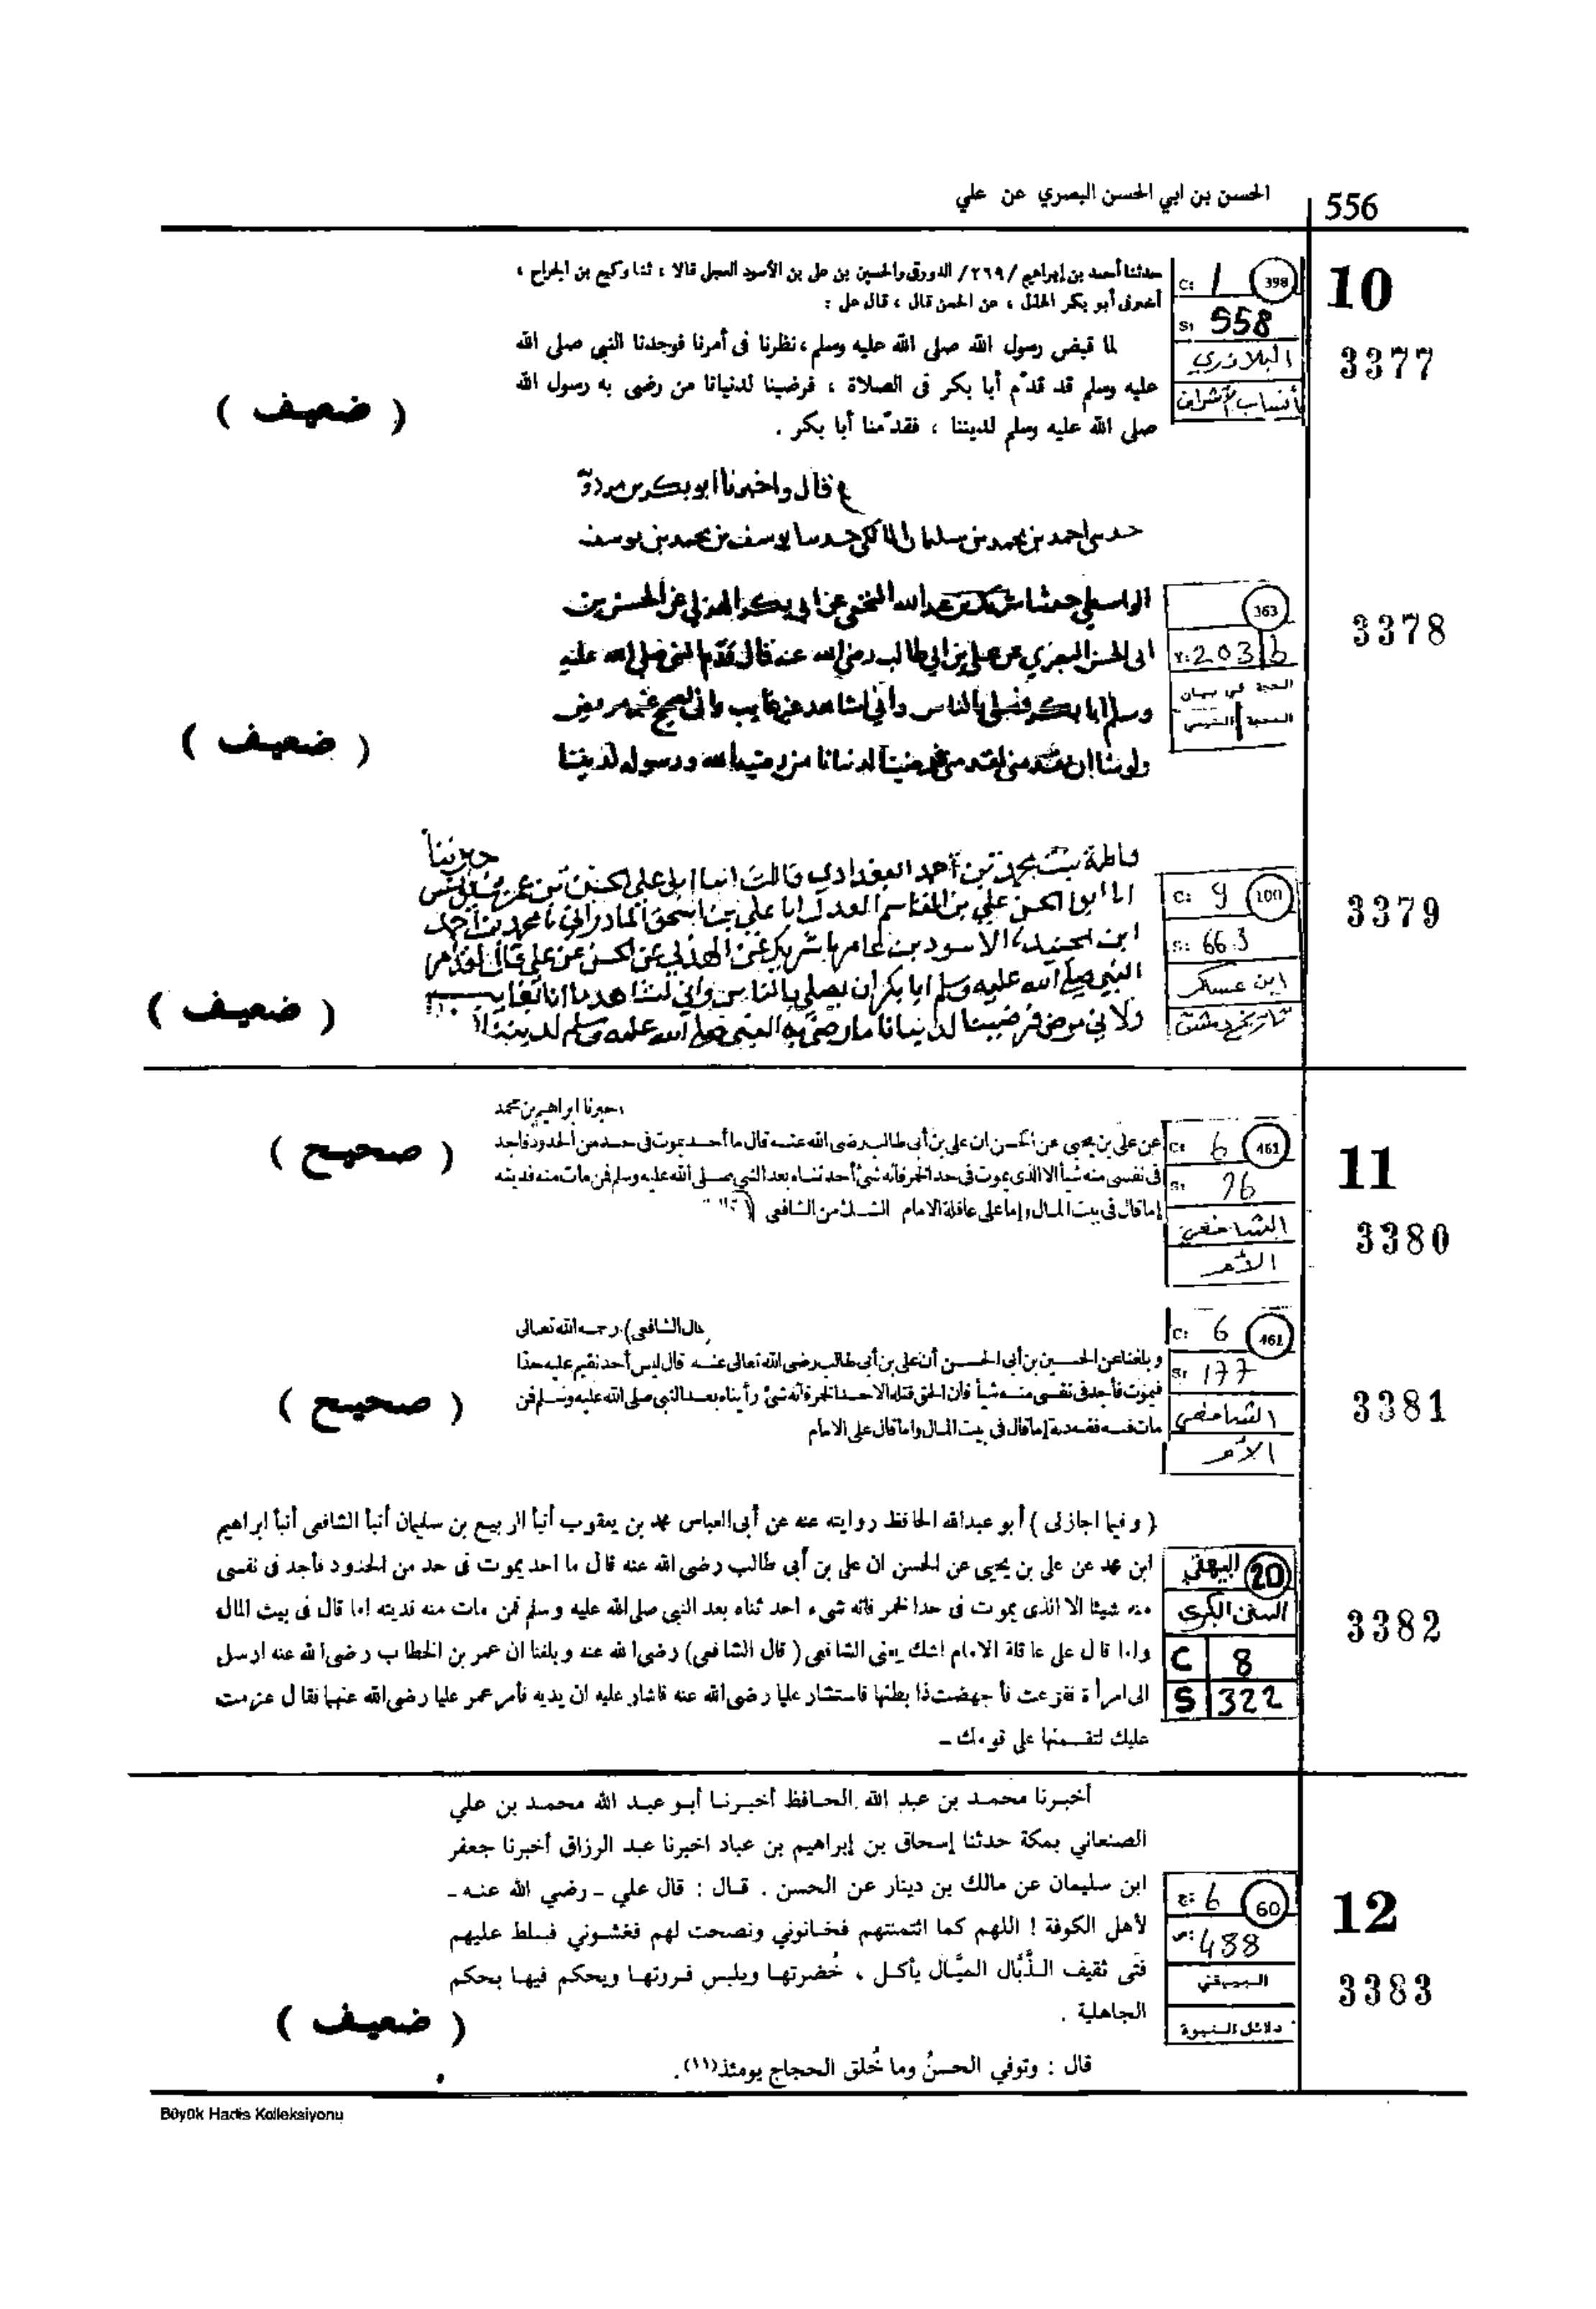 556
الحسن بن ابي الحسن البصري عن علي
10
3377
C: 1 398
S: 558
البلاذري
أنساب الأشراف
حدثنا أحمد بن إبراهيم /٢٦٩/ الدورق والحسين بن على بن الأسود العجل قالا ، ثنا وكيع بن الجراح ،
أخبرنى أبو بكر الهذلى ، عن الحسن قال ، قال على :
لما قبض رسول الله صلى الله عليه وسلم ، نظرنا فى أمرنا فوجدنا النبي صلى الله
عليه وسلم قد قدّم أبا بكر فى الصلاة ، فرضينا لدنيانا من رضى به رسول الله
صلى الله عليه وسلم لديننا ، فقدّمنا أبا بكر .
( ضعيف )
3378
363
203 b
الحجة في بيان
المحجة التيمي
قال واخبرنا ابو بكر بن مردو
حدسى احمد بن محمد بن سليمان المالكي حدسا يوسف بن محمد بن يوسف
الواسطي حدثنا شريك بن عبد الله النخعي عن ابي بكر الهذلي عن الحسن بن
ابى الحسن البصري عن علي بن ابي طالب رضي الله عنه قال قدم النبي صلى الله عليه
وسلم ابا بكر فصلى بالناس واني لشاهد غير غايب واني لصحيح غير مريض
ولو شا ان يقدمني لقدمني فرضينا لدنيانا من رضيه الله ورسوله لديننا
( ضعيف )
3379
C: 9 100
S: 663
ابن عساكر
تاريخ دمشق
فاطمة بنت محمد بن أحمد البغدادي قالت انبا ابو علي الحسن بن عمر بن
انا ابو الحسن علي بن القاسم المعدل انا علي بن اسحق المادرائي نا محمد بن أحمد
ابن الجنيد نا الاسود بن عامر نا شريك عن الهذلي عن الحسن عن علي قال لقد امر
النبي صلى الله عليه وسلم ابا بكر ان يصلي بالناس واني لشاهد ما انا بغايب
ولا بي مرض فرضينا لدنيانا ما رضي به النبي صلى الله عليه وسلم لديننا
( ضعيف )
11
3380
C: 6 461
S: 76
الشافعي
الأم
اخبرنا ابراهيم بن محمد
عن على بن يحيى عن الحسن ان على بن أبى طالب رضى الله عنه قال ما أحد يموت فى حد من الحدود فاجد
فى نفسى منه شيأ الا الذى يموت فى حد الخمر فانه شئ أحدثناه بعد النبى صلى الله عليه وسلم فمن مات منه فديته
إما قال فى بيت المال وإما على عاقلة الامام الشك من الشافعى
( صحيح )
3381
C: 6 461
S: 177
الشافعي
الأم
قال الشافعى) رحمه الله تعالى
وبلغنا عن الحسين بن أبى الحسن أن على بن أبى طالب رضى الله تعالى عنه قال ليس أحد نقيم عليه حدا
فيموت فأجد فى نفسى منه شيأ فان الحق قتله الا حد الخمر فانه شئ رأيناه بعد النبى صلى الله عليه وسلم فمن
مات فيه ففيه دية إما قال فى بيت المال واما قال على الامام
( صحيح )
3382
البيهقي 20
السنن الكبرى
C 8
S 322
( وفيما اجازلى ) أبو عبدالله الحافظ روايته عنه عن أبى العباس محمد بن يعقوب أنبأ الربيع بن سليمان أنبأ الشافعى أنبأ ابراهيم
ابن محمد عن على بن يحيى عن الحسن ان على بن أبى طالب رضى الله عنه قال ما احد يموت فى حد من الحدود فأجد فى نفسى
منه شيئا الا الذى يموت فى حد الخمر فانه شىء احدثناه بعد النبى صلى الله عليه وسلم فمن مات منه فديته اما قال فى بيت المال
واما قال على عاقلة الامام اشك يعنى الشافعى ( قال الشافعى ) رضى الله عنه وبلغنا ان عمر بن الخطاب رضى الله عنه ارسل
الى امرأة ففزعت فأجهضت ذا بطنها فاستشار عليا رضى الله عنه فاشار عليه ان يديه فأمر عمر عليا رضى الله عنهما فقال عزمت
عليك لتقسمنها على قومك ـ
12
3383
ج: 6 60
ص: 488
البيهقي
دلائل النبوة
أخبرنا محمد بن عبد الله الحافظ أخبرنا أبو عبد الله محمد بن علي
الصنعاني بمكة حدثنا إسحاق بن إبراهيم بن عباد اخبرنا عبد الرزاق أخبرنا جعفر
ابن سليمان عن مالك بن دينار عن الحسن . قال : قال علي ـ رضي الله عنه ـ
لأهل الكوفة ! اللهم كما ائتمنتهم فخانوني ونصحت لهم فغشوني فسلط عليهم
فتى ثقيف الذَّبَّال الميَّال يأكل ، خُضرتها ويلبس فروتها ويحكم فيها بحكم
الجاهلية .
قال : وتوفي الحسنُ وما خُلق الحجاج يومئذ(١١).
( ضعيف )
Büyük Hadis Kolleksiyonu